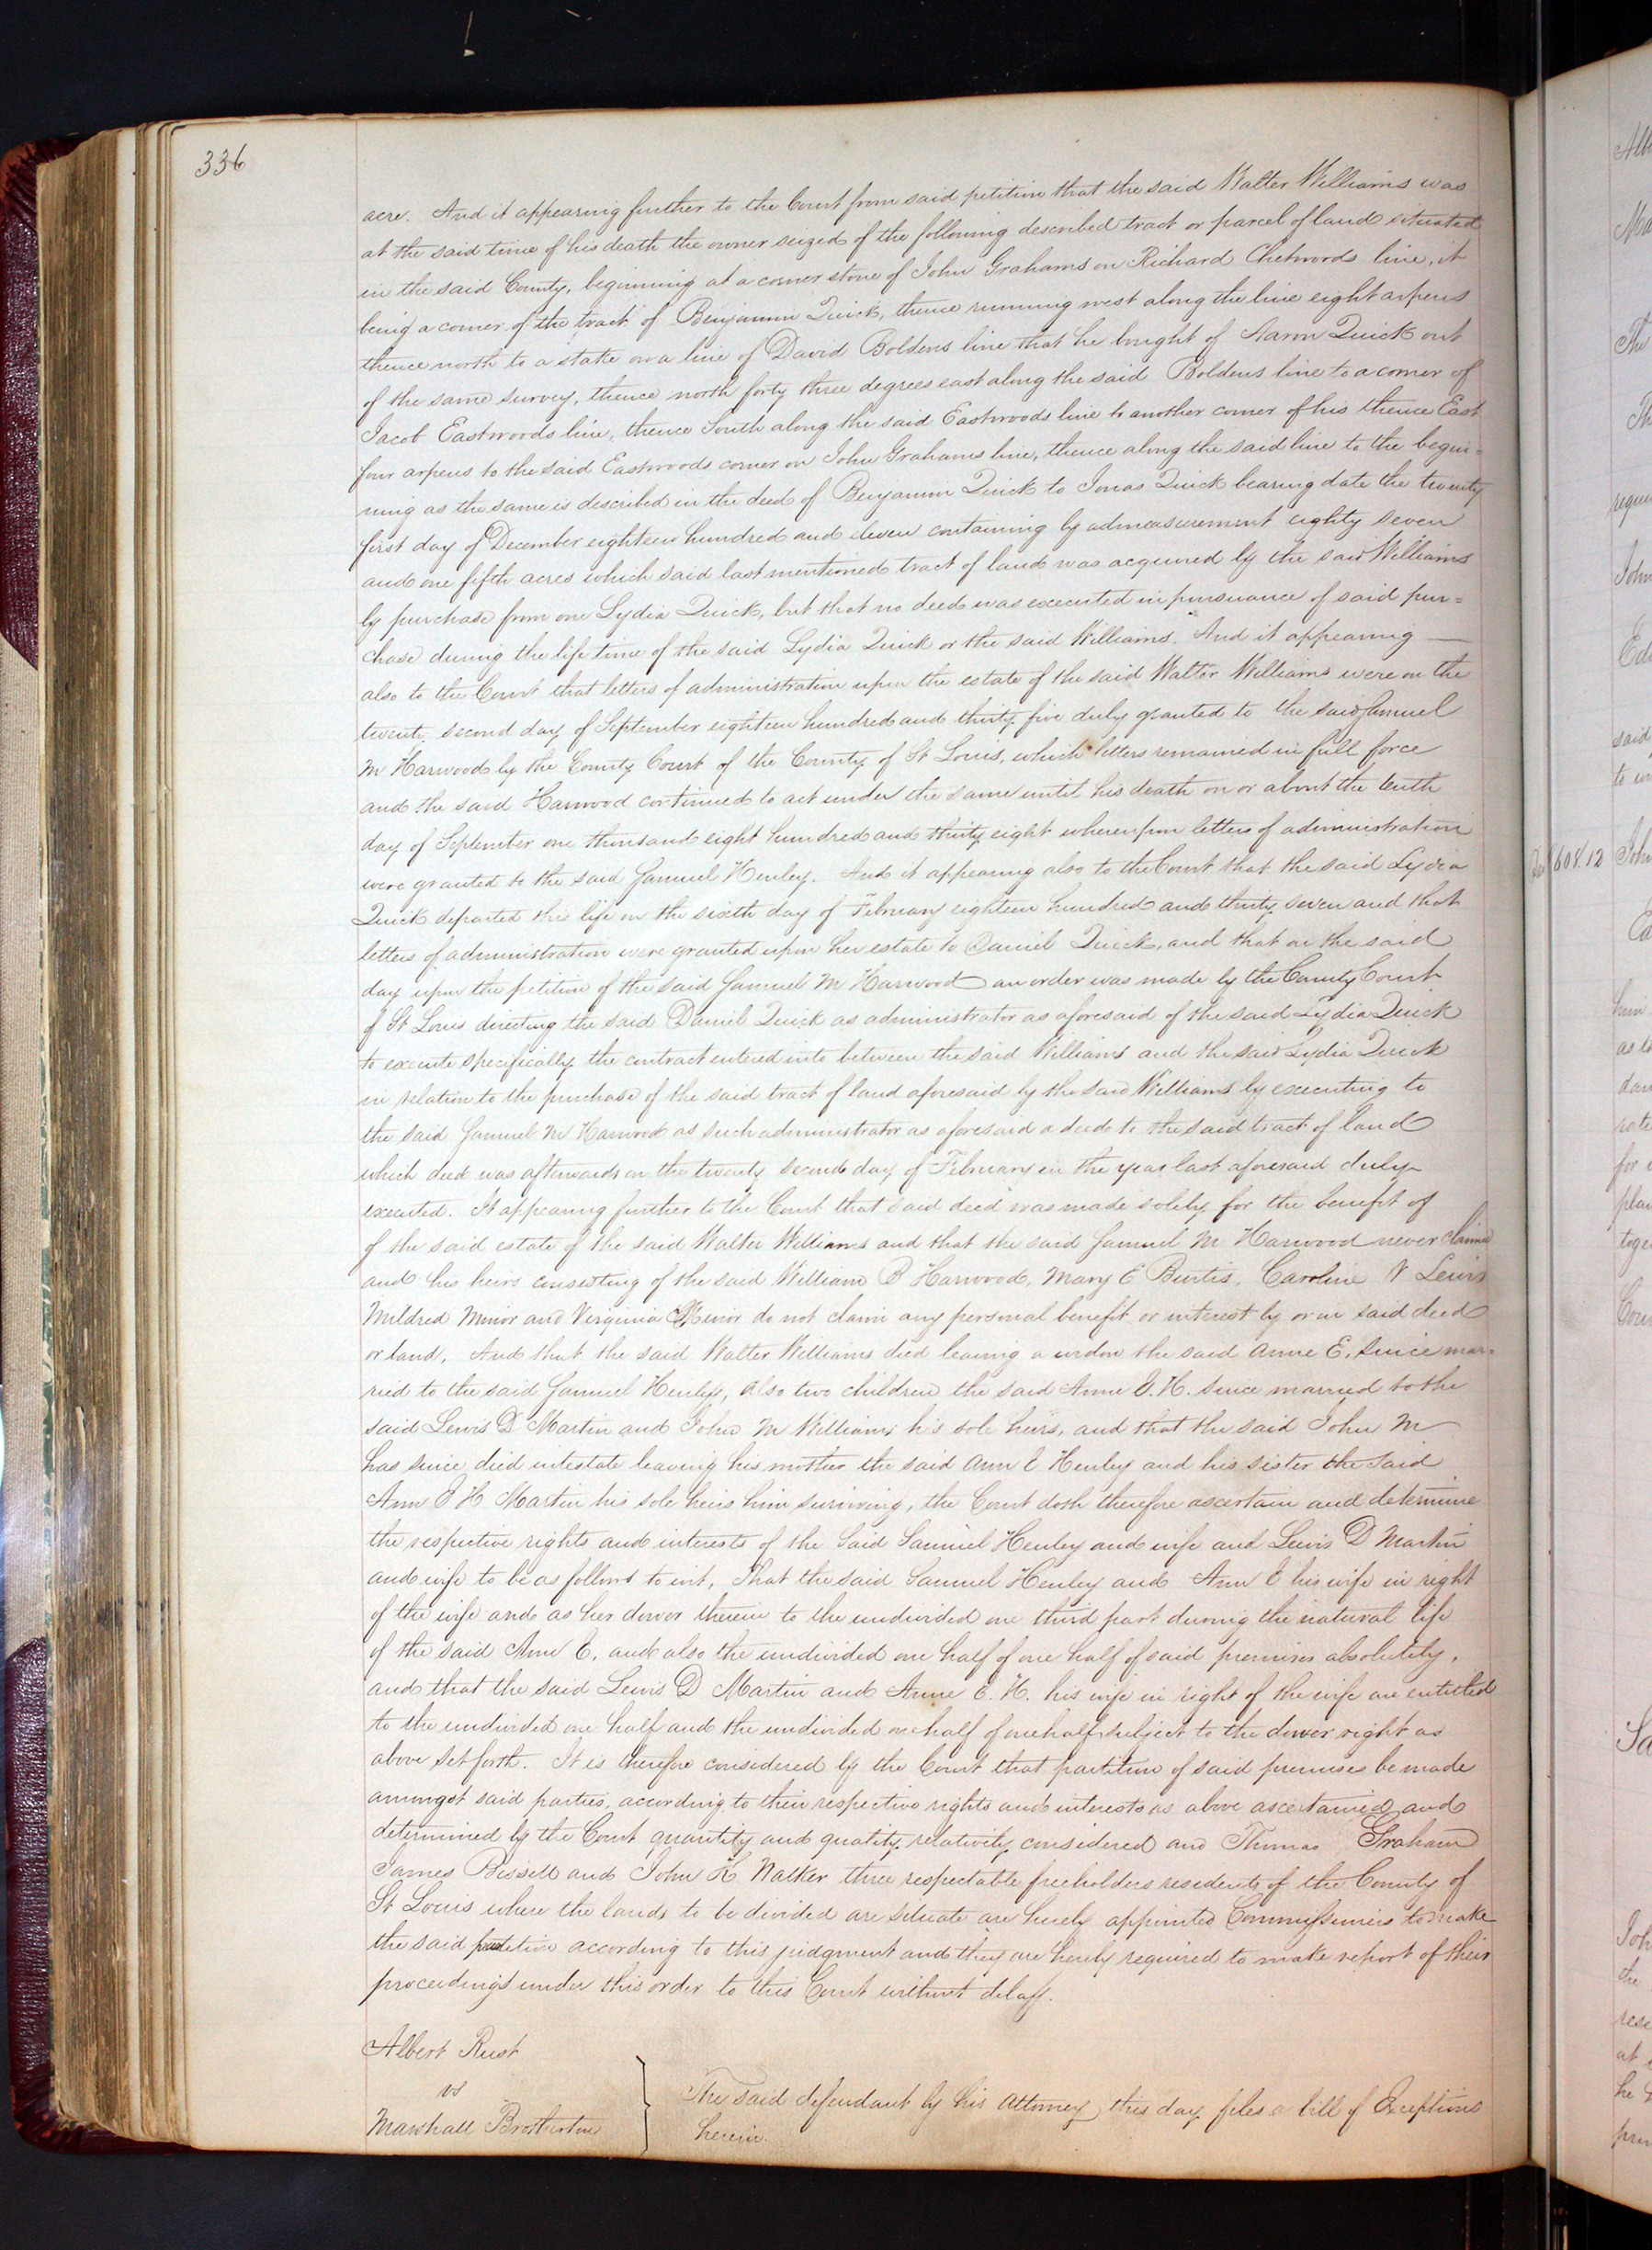 336
acre. And it appearing further to the Court from said petition that the said Walter Williams was
at the said time of his death the owner seized of the following described tract or parcel of land situated
in the said County, beginning at a corner stone of John Grahams on Richard Chetwoods line, it
being a corner of the tract of Benjamin Quick, thence running west along the line eight arpens
thence north to a stake on a line of David Boldens line that he bought of Aaron Quick out
of the same survey, thence north forty three degrees east along the said Boldens line to a corner of
Jacob Eastwoods line, thence South along the said Eastwoods line to another corner of his thence East
four arpens to the said Eastwoods corner on John Grahams line, thence along the said line to the begin=
ning as the same is described in the deed of Benjamin Quick to Jonas Quick bearing date the twenty
first day of December eighteen hundred and eleven containing by admeasurement eighty seven
and one fifth acres which said last mentioned tract of land was acquired by the said Williams
by purchase from one Lydia Quick, but that no deed was executed in pursuance of said pur=
chase during the life time of the said Lydia Quick or the said Williams. And it appearing
also to the Court that letters of administration upon the estate of the said Walter Williams were on the
twenty second day of September eighteen hundred and thirty five duly granted to the said Samuel
M Harwood by the County Court of the County of St Louis, which letters remained in full force
and the said Harwood continued to act under the same until his death on or about the tenth
day of September one thousand eight hundred and thirty eight whereupon letters of administration
were granted to the said Samuel Henley. And it appearing also to the Court that the said Lydia
Quick departed this life on the sixth day of February eighteen hundred and thirty seven and that
letters of administration were granted upon her estate to Daniel Quick, and that on the said
day upon the petition of the said Samuel M Harwood an order was made by the County Court
of St Louis directing the said Daniel Quick as administrator as aforesaid of the said Lydia Quick
to execute specifically the contract entered into between the said Williams and the said Lydia Quick
in relation to the purchase of the said tract of land aforesaid by the said Williams by executing to
the said Samuel M Harwood as such administrator as aforesaid a deed to the said tract of land
which deed was afterwards on the twenty second day of February in the year last aforesaid duly
executed. It appearing further to the Court that said deed was made solely for the benefit of
of the said estate of the said Walter Williams and that the said Samuel M Harwood never claimed
and his heirs consisting of the said William B Harwood, Mary E Burtis, Caroline V Lewis
Mildred Minor and Virginia Minor do not claim any personal benefit or interest by or in said deed
or land, And that the said Walter Williams died leaving a widow the said Anne E. since mar=
ried to the said Samuel Henley, also two children the said Anne E. H. since married to the
said Lewis D Martin and John M Williams his sole heirs, and that the said John M
has since died intestate leaving his mother the said Ann E Henley and his sister the said
Ann E H Martin his sole heirs him surviving, the Court doth therefore ascertain and determine
the respective rights and interests of the said Samuel Henley and wife and Lewis D Martin
and wife to be as follows to wit, That the said Samuel Henley and Ann E his wife in right
of the wife and as her dower therein to the undivided one third part during the natural life
of the said Ann E, and also the undivided one half of one half of said premises absolutely,
and that the said Lewis D Martin and Anne E. H. his wife in right of the wife are entitled
to the undivided one half and the undivided one half of one half subject to the dower right as
above set forth. It is therefore considered by the Court that partition of said premises be made
amongst said parties, according to their respective rights and interests as above ascertained and
determined by the Court quantity and quality relatively considered and Thomas Graham
James Bissell and John K Walker three respectable freeholders residents of the County of
St Louis where the lands to be divided are situate are hereby appointed Commissioners to make
the said partition according to this judgment and they are hereby required to make report of their
proceedings under this order to this Court without delay.
Albert Rust
vs
Marshall Brotherton
The said defendant by his attorney this day files a bill of Exceptions
herein.